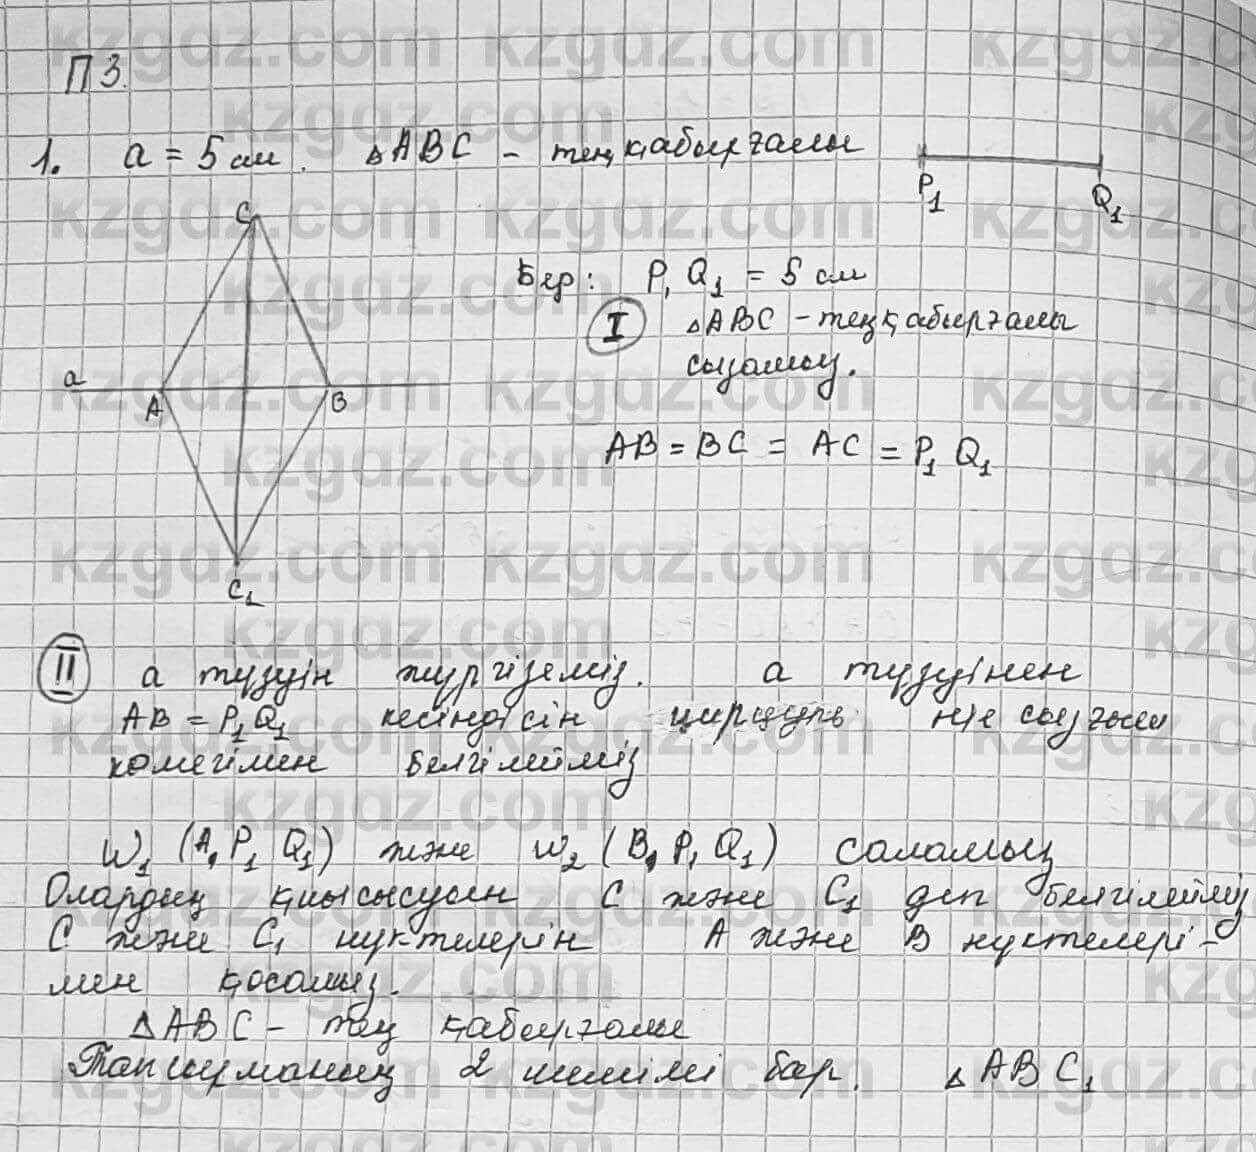 П 3.
1. a = 5 см. △ABC - теңқабырғалы
P₁ Q₁
C
a A B
C₁
Бер: P₁ Q₁ = 5 см
I △ABC - теңқабырғалы
сызамыз.
AB = BC = AC = P₁ Q₁
II a түзуін жүргіземіз. a түзуінен
AB = P₁Q₁ кесіндісін циркуль не сызғыш
көмегімен белгілейміз
W₁ (A, P₁ Q₁) және W₂ (B, P₁ Q₁) саламыз
Олардың қиысысуын C және C₁ деп белгілейміз
C және C₁ нүктелерін A және B нүктелері-
мен қосамыз.
△ABC - тең қабырғалы
Тапсырманың 2 шешімі бар. △ABC₁
kzgdz.com